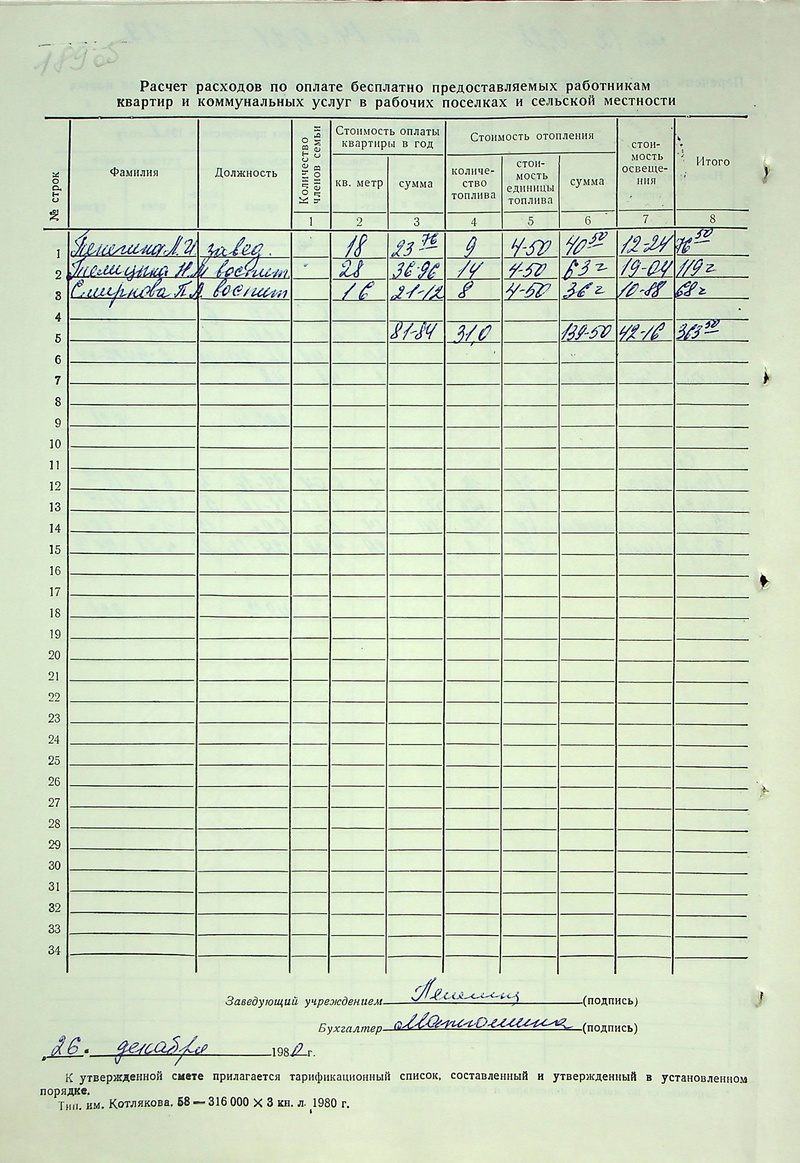 189об
Расчет расходов по оплате бесплатно предоставляемых работникам
квартир и коммунальных услуг в рабочих поселках и сельской местности
№ строк
Фамилия
Должность
Количество членов семьи
Стоимость оплаты квартиры в год
кв. метр
сумма
Стоимость отопления
количество топлива
стоимость единицы топлива
сумма
стоимость освещения
Итого
1 2 3 4 5 6 7 8
1 завед. 18 23 76 9 4-50 40 50 12-24 76 50
2 воспит. 28 36-96 14 4-50 63 г 19-04 119 г
3 Смирнова П.А. воспит 16 21-12 8 4-50 36 г 10-88 68 г
4
5 81-84 31,0 139-50 42-16 363 50
6
7
8
9
10
11
12
13
14
15
16
17
18
19
20
21
22
23
24
25
26
27
28
29
30
31
32
33
34
Заведующий учреждением (подпись)
Бухгалтер (подпись)
26. декабря 1980 г.
К утвержденной смете прилагается тарификационный список, составленный и утвержденный в установленном
порядке.
Тип. им. Котлякова. 58 — 316 000 X 3 кн. л. 1980 г.